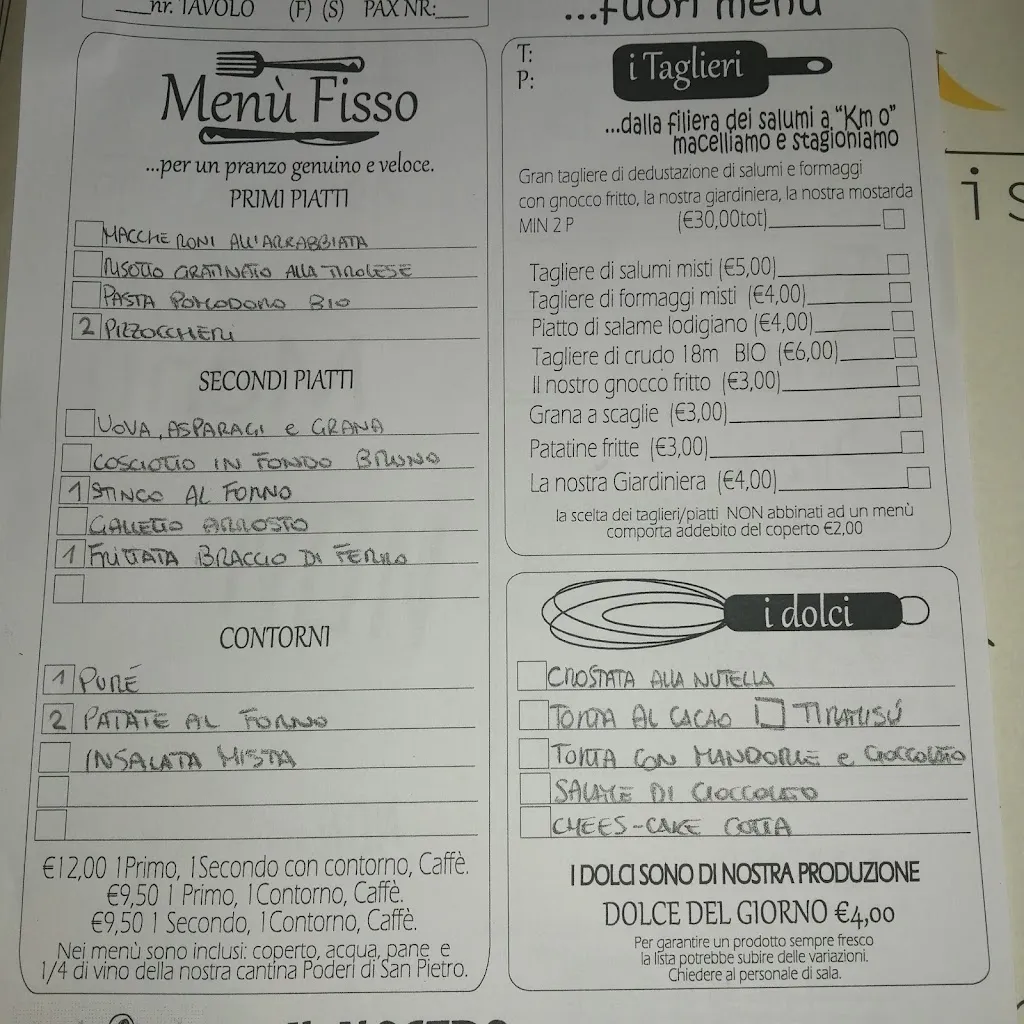 nr. TAVOLO (F) (S) PAX NR:
Menù Fisso
...per un pranzo genuino e veloce.
PRIMI PIATTI
MACCHERONI ALL'ARRABBIATA
RISOTTO GRATINATO ALLA TIROLESE
PASTA POMODORO BIO
2 PIZZOCCHERI
SECONDI PIATTI
UOVA, ASPARAGI e GRANA
COSCIOTTO IN FONDO BRUNO
1 STINCO AL FORNO
GALLETTO ARROSTO
1 FRITTATA BRACCIO DI FERRO
CONTORNI
1 PURÉ
2 PATATE AL FORNO
INSALATA MISTA
€12,00 1Primo, 1Secondo con contorno, Caffè.
€9,50 1 Primo, 1Contorno, Caffè.
€9,50 1 Secondo, 1Contorno, Caffè.
Nei menù sono inclusi: coperto, acqua, pane e
1/4 di vino della nostra cantina Poderi di San Pietro.
...fuori menù
T:
P:
i Taglieri
...dalla filiera dei salumi a "Km o"
macelliamo e stagioniamo
Gran tagliere di dedustazione di salumi e formaggi
con gnocco fritto, la nostra giardiniera, la nostra mostarda
MIN 2 P (€30,00tot)
Tagliere di salumi misti (€5,00)
Tagliere di formaggi misti (€4,00)
Piatto di salame lodigiano (€4,00)
Tagliere di crudo 18m BIO (€6,00)
Il nostro gnocco fritto (€3,00)
Grana a scaglie (€3,00)
Patatine fritte (€3,00)
La nostra Giardiniera (€4,00)
la scelta dei taglieri/piatti NON abbinati ad un menù
comporta addebito del coperto €2,00
i dolci
CROSTATA ALLA NUTELLA
TORTA AL CACAO TIRAMISÚ
TORTA CON MANDORLE e CIOCCOLATO
SALAME DI CIOCCOLATO
CHEES-CAKE COTTA
I DOLCI SONO DI NOSTRA PRODUZIONE
DOLCE DEL GIORNO €4,00
Per garantire un prodotto sempre fresco
la lista potrebbe subire delle variazioni.
Chiedere al personale di sala.